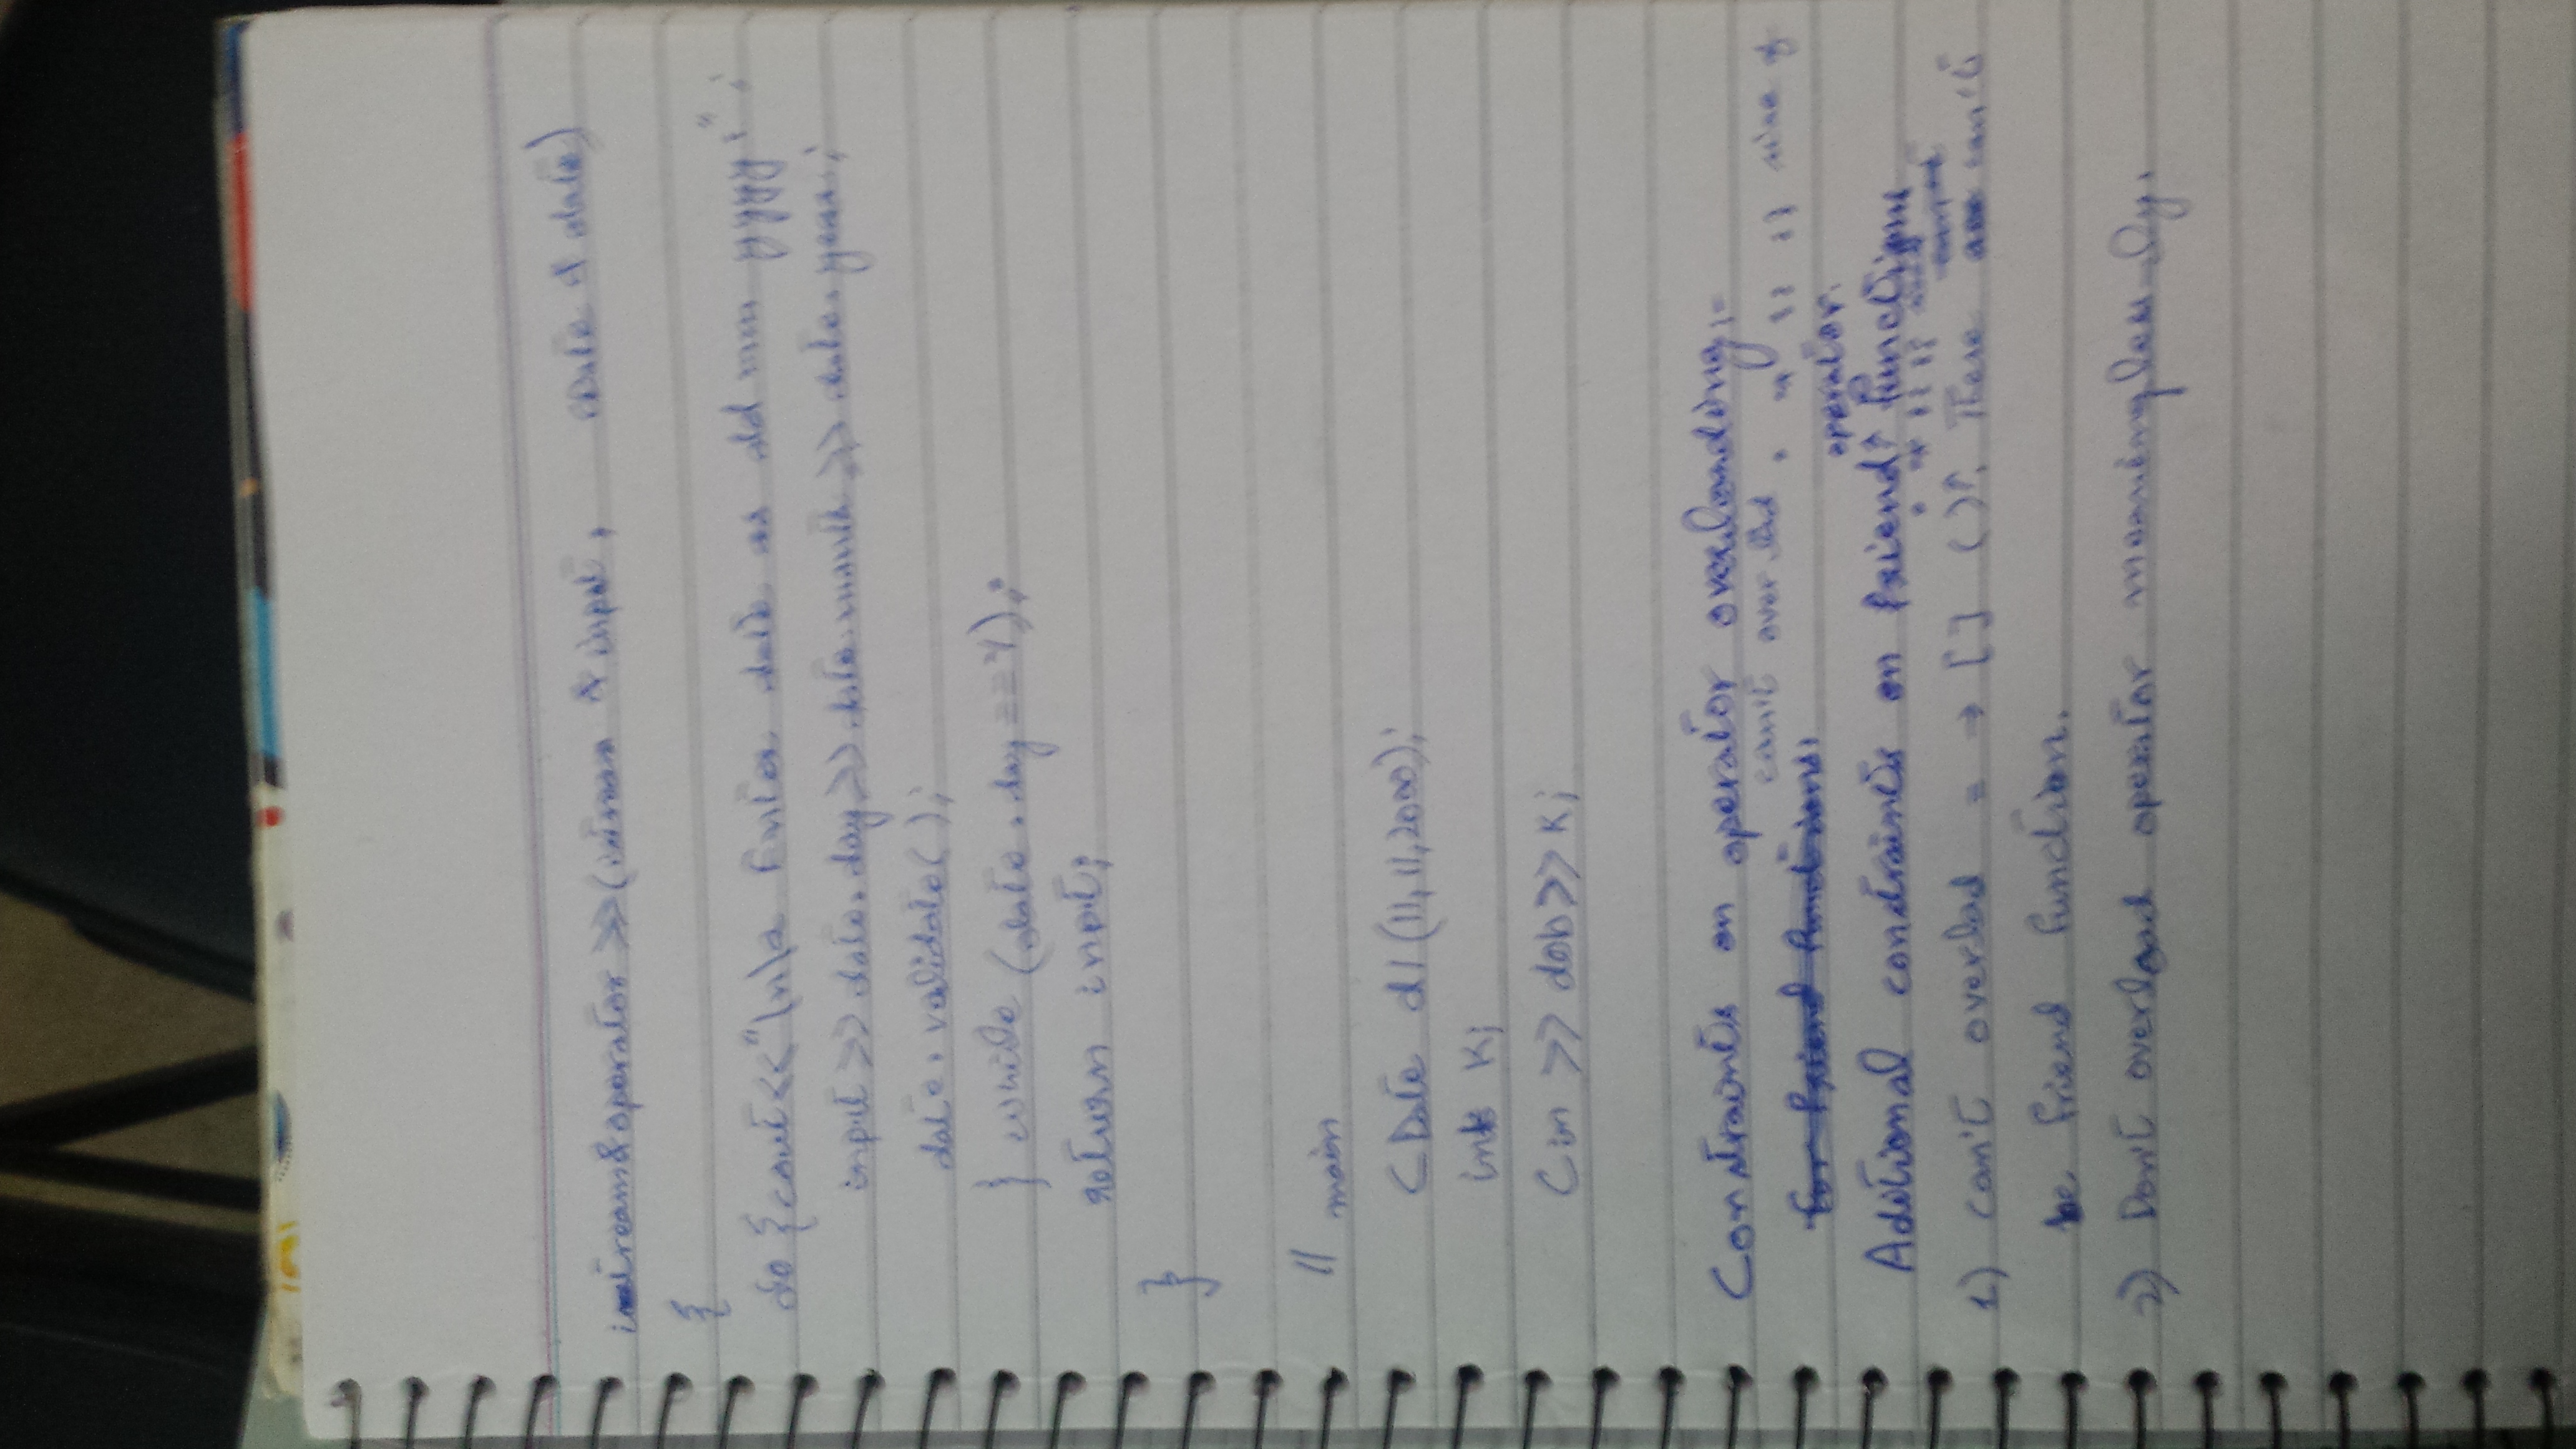 istream& operator >> (istream & input, CDate & date)
{
do { cout << "\n\a Enter date as dd mm yyyy : ";
input >> date.day >> date.month >> date.year;
date.validate();
} while (date.day == 4);
return input;
}
// main
CDate d1 (11, 11, 2000);
int k;
Cin >> dob >> k;
Constraints on operator overloading:-
can't overlod . :: size of
for friend functions:
operator
Additional constraints on friend ^ functions
1.) can't overlod = → [] () ^. These can't
be friend function.
2.) Don't overload operator meaninglessly.